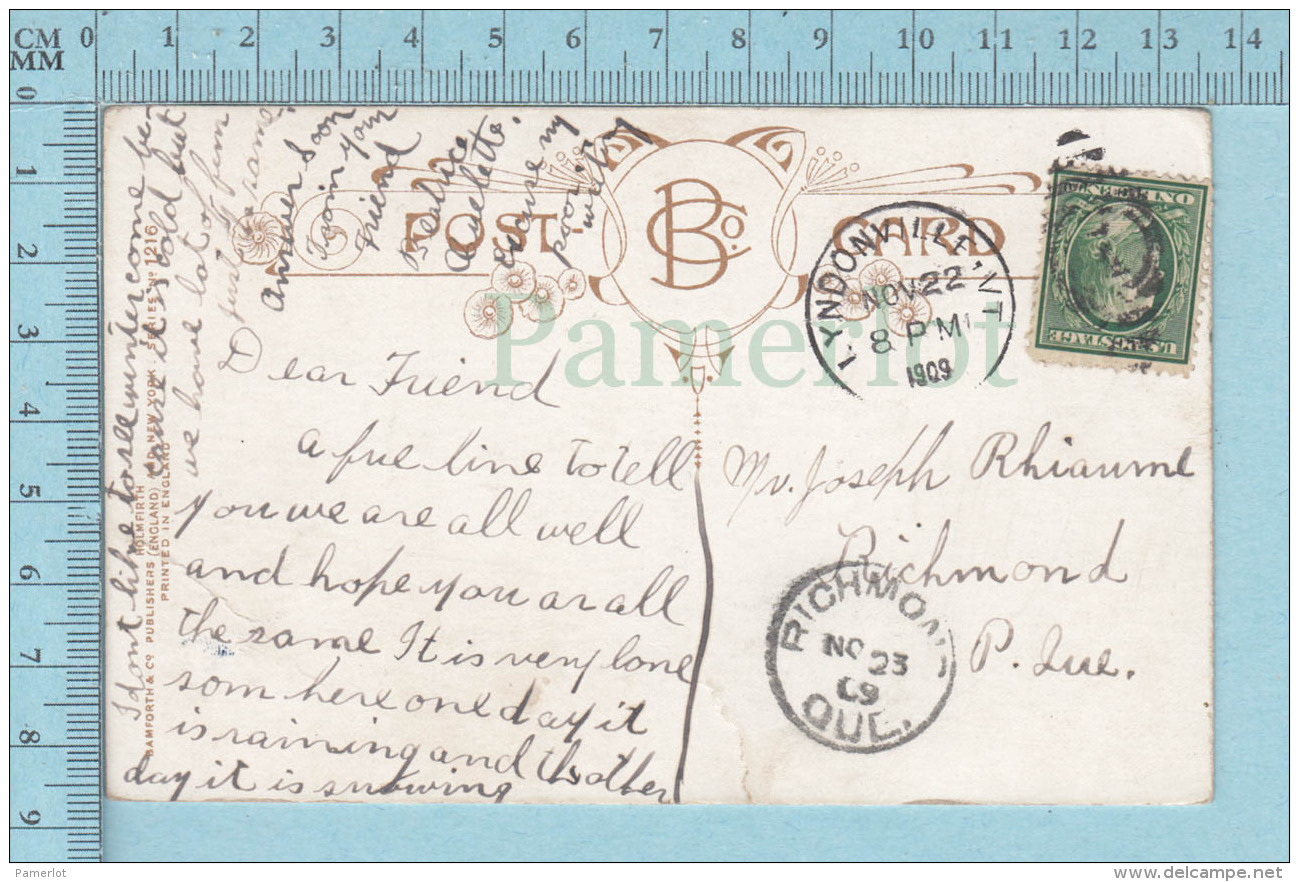 CM 0 1 2 3 4 5 6 7 8 9 10 11 12 13 14
MM
0
1
2
3
4
5
6
7
8
9
POST CARD
BCo.
LYNDONVILLE, VT.
NOV 22
8 PM
1909
ONE CENT
U.S. POSTAGE
Dear Friend
A fue line to tell
you we are all well
and hope you ar all
the same It is very lone
som here one day it
is raining and the other
day it is snowing
I dont like to see winter come be
cause it is cold but
we have lot of fun
just the same.
Answer soon
From your
Friend
Beatrice
Ouelette.
Excuse my
poor
writing
Mr. Joseph Rhiaume
Richmond
P. Que.
RICHMOND
NO 23
09
QUE.
BAMFORTH & CO PUBLISHERS (ENGLAND) AND NEW YORK. SERIES NO 1216
HOLMFIRTH
PRINTED IN ENGLAND
Pamerlot
Pamerlot
delcampe.net